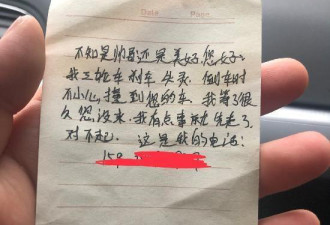 Date Page
不知是帅哥还是美女您好。
我三轮车刹车失灵，倒车时
不小心撞到您的车，我等了很
久您没来，我有点事就先走了，
对不起，这是我的电话：
159